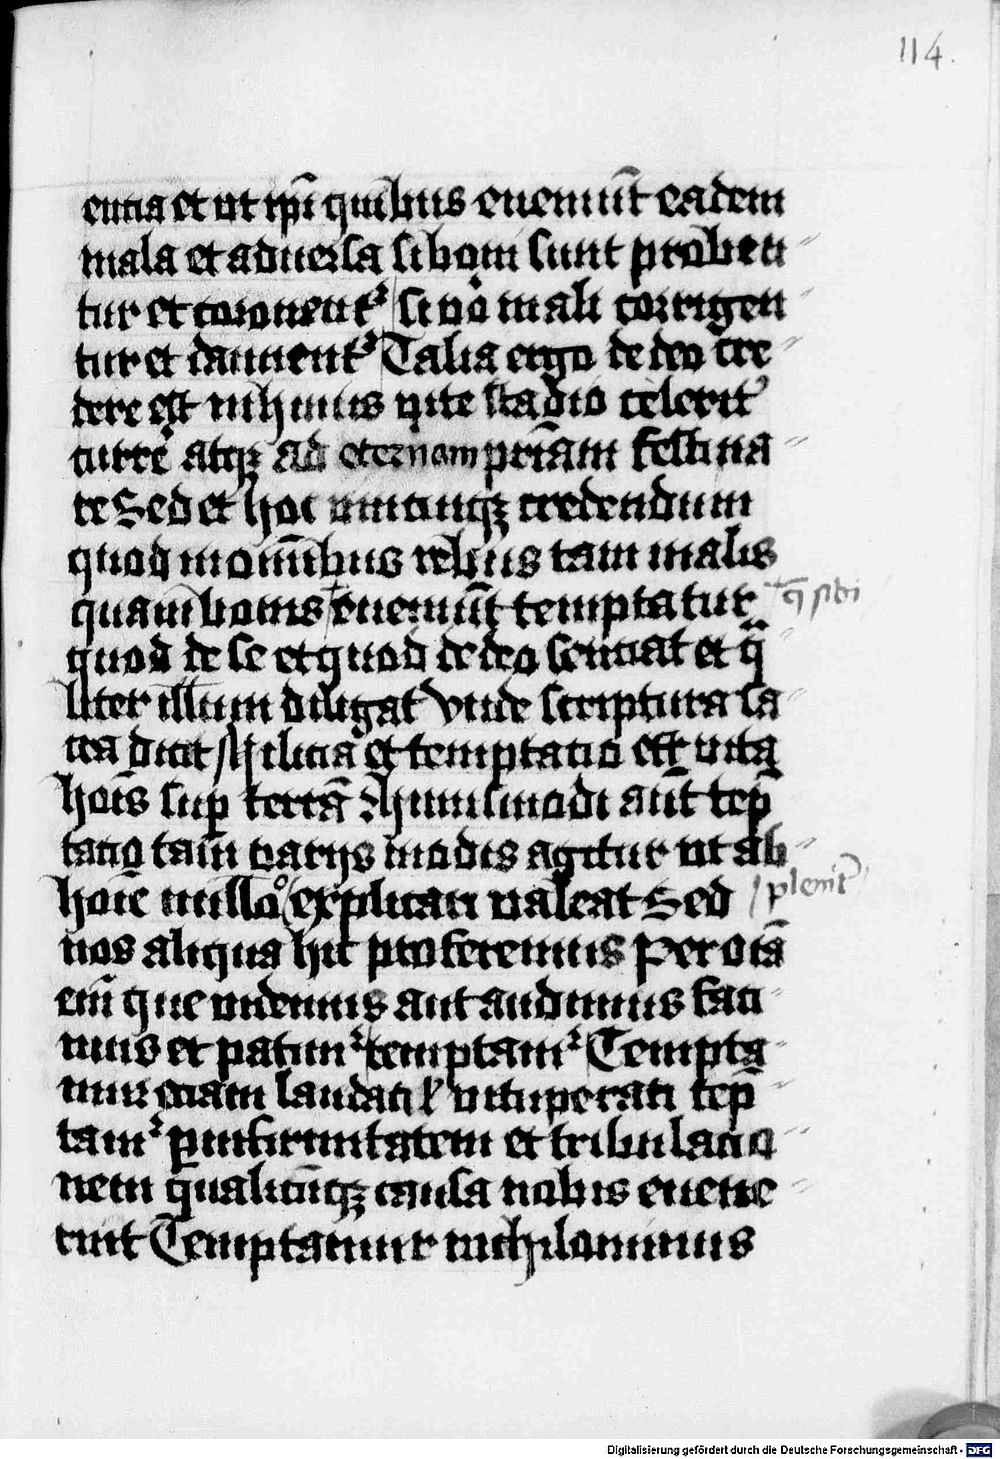 114.
entia et ut ip̄i quibus eueniūt eadem
mala et aduersa si boni sunt proben
tur et coronent᷑ si nō mali corrigen
tur et dānent᷑ Talia ergo de deo cre
dere est nih̄ minus q̄ ite stadio celerit᷑
currē atq̨ ad eternam pr̄iam festina
re Sed et hoc unicuiq̨ credendum
quod in omībus reb̄us tam malis
quam bonis eueniūt temptatur q̄ sibi
quod de se et quod de deo sentiat et q̄
liter illum diligat Vnde scriptura sa
cra dicit Milicia et temptatio est uita
hoīs sup terrā huiusmodi aūt tēp
tatio tam̄ varijs modis agitur ut ab
hoīe nullo° explicari valeat Sed plenit᷑
nos aliqua hic proferemus Per oīa
em̄ que videmus aut audimus faci
mus et patim᷑ temptam᷑ Tempta
mur eciam laudati l̵ vituperati tēp
tam᷑ p infirmitatem et tribulacio
nem qualicūq̨ causa nobis euene
rint Temptamur nichilominus
Digitalisierung gefördert durch die Deutsche Forschungsgemeinschaft - DFG